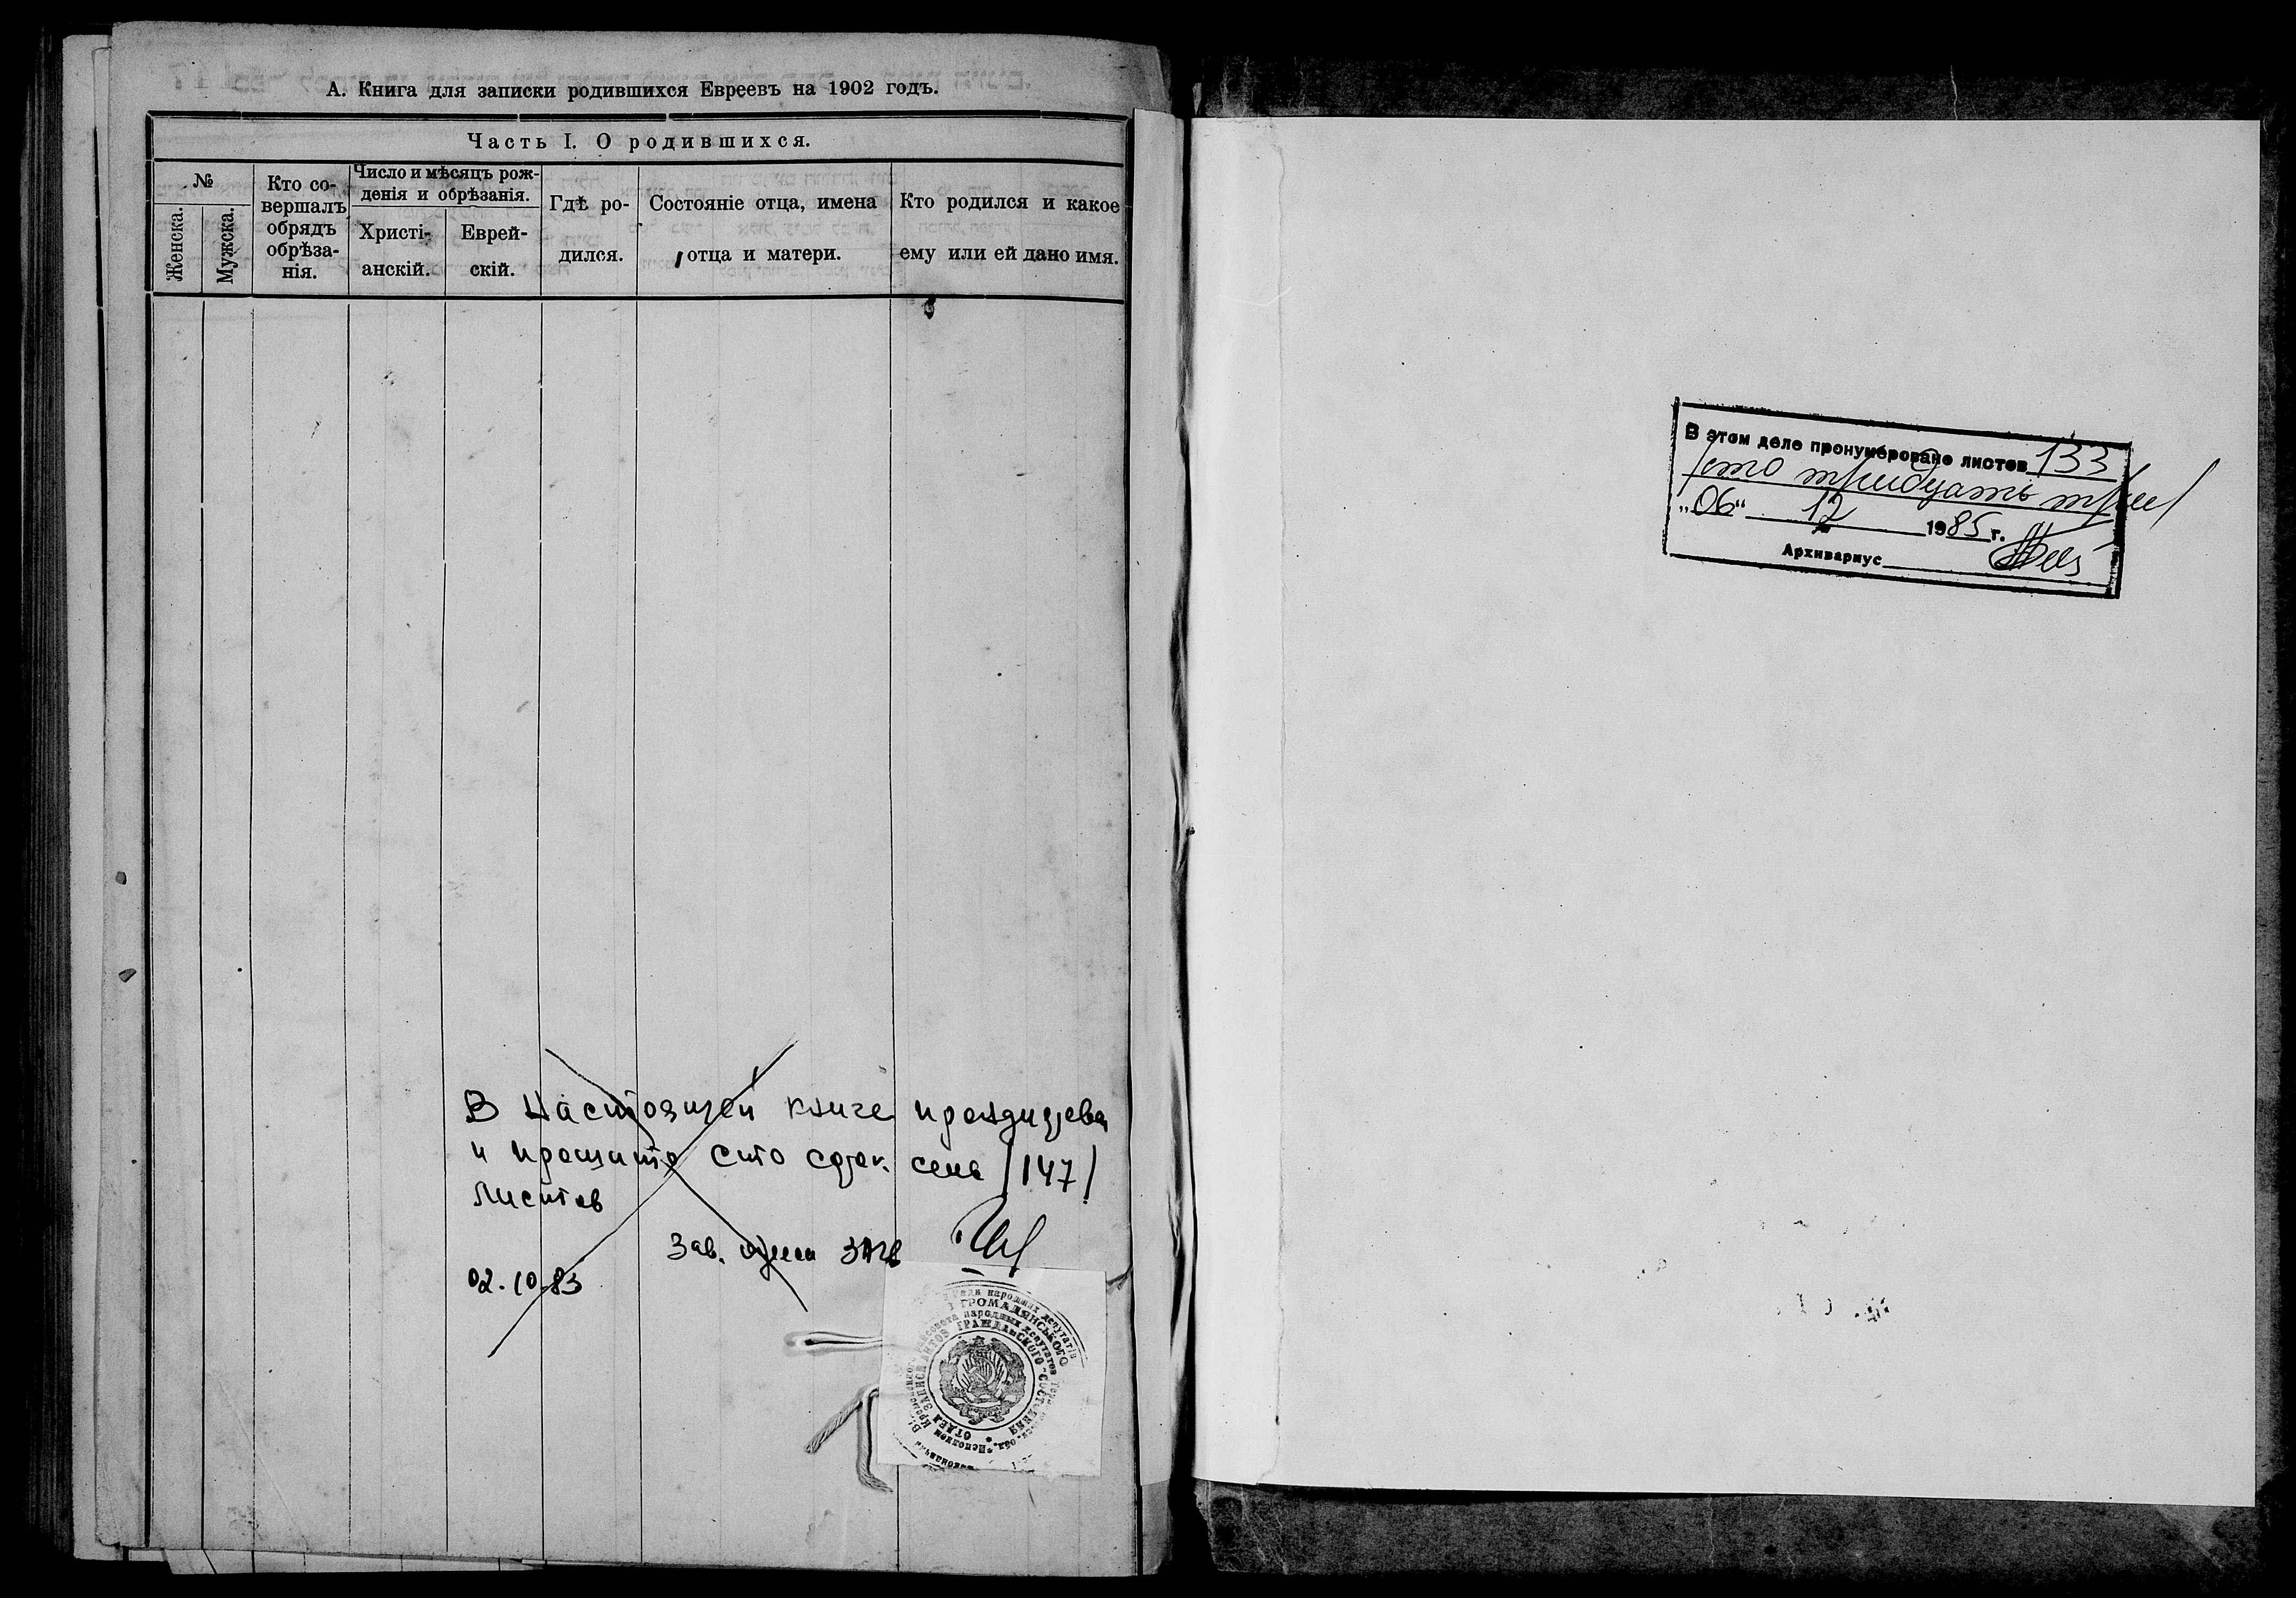 А. Книга для записки родившихся Евреевъ на 1902 годъ.
Часть I. О родившихся.
№
Женска.
Мужска.
Кто со-
вершалъ
обрядъ
обрѣза-
нія.
Число и мѣсяцъ рож-
денія и обрѣзанія.
Христі-
анскій.
Еврей-
скій.
Гдѣ ро-
дился.
Состояніе отца, имена
отца и матери.
Кто родился и какое
ему или ей дано имя.
В настоящей книге
и прошито сто сорок семь /147/
листов
Зав. ЗАГС
02.10.83
ГРОМАДЯНСЬКОГО
народных депутатов
ОТДЕЛ ЗАПИСИ АКТОВ ГРАЖДАНСКОГО СОСТОЯНИЯ
В этом деле пронумеровано листов 133
/сто тридцать три/
„06“ 12 1985 г.
Архивариус